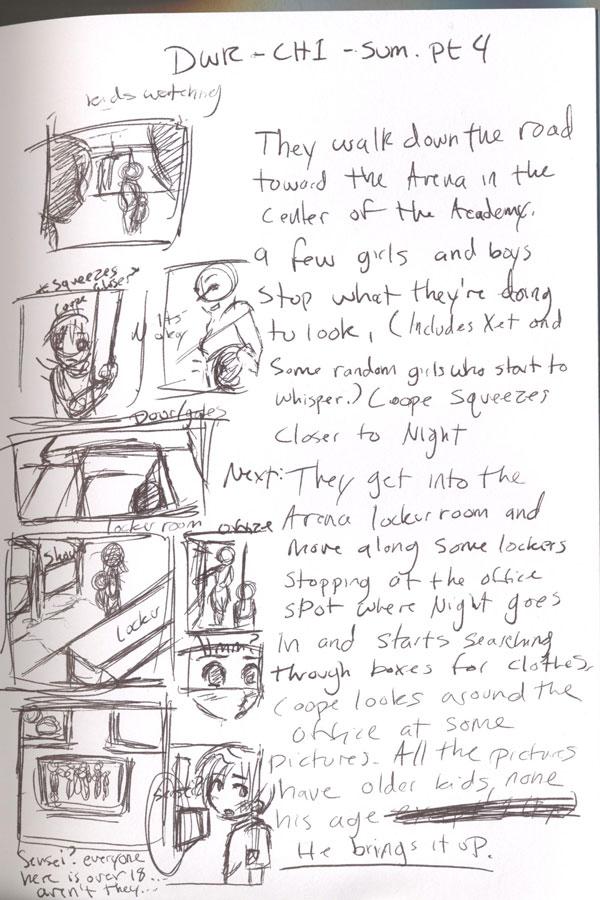 DWR - CHI - Sum. pt 4
kids watching
They walk down the road
toward the Arena in the
center of the Academy.
a few girls and boys
stop what they're doing
to look, (Includes Xet and
Some random girls who start to
whisper.) Coope squeezes
closer to Night
*Squeezes
closer*
Coope
Its
okay
Door/gates
Next: They get into the
Arena locker room and
move along some lockers
stopping at the office
spot where Night goes
in and starts searching
through boxes for clothes.
Coope looks around the
office at some
pictures. All the pictures
have older kids, none
his age
He brings it up.
locker room
office
Show
locker
Hmm?
sensei?
Sensei? everyone
here is over 18...
aren't they...